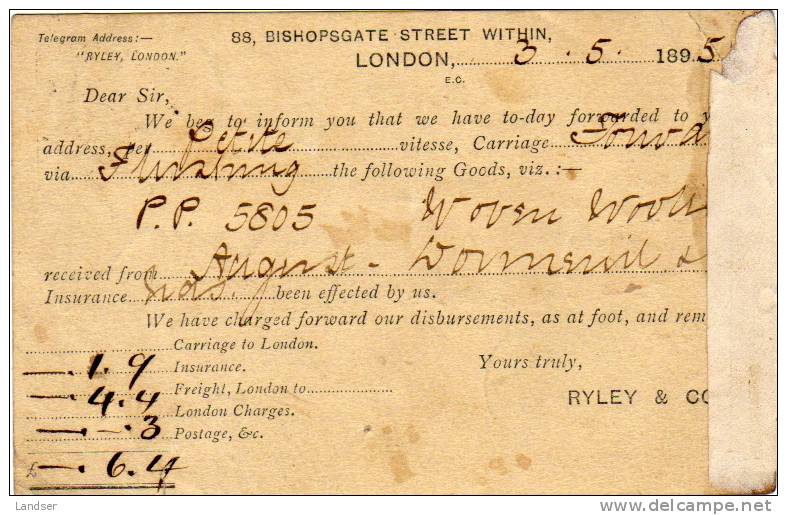 Telegram Address:—
"RYLEY, LONDON."
88, BISHOPSGATE STREET WITHIN,
LONDON, 3 . 5 . 1895
E.C.
Dear Sir,
We beg to inform you that we have to-day forwarded to y
address, per Petite vitesse, Carriage Forwa
via Flushing the following Goods, viz.:—
P.P. 5805 Woven Wool
received from August Dormeuil &
Insurance has been effected by us.
We have charged forward our disbursements, as at foot, and rem
Carriage to London.
—. 1. 9 Insurance.
Freight, London to
—. 4. 4 London Charges.
—. —. 3 Postage, &c.
£ —. 6. 4
Yours truly,
RYLEY & CO
Landser
delcampe.net